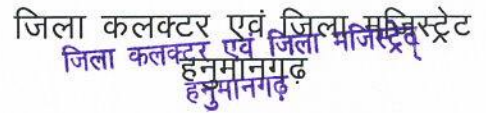 जिला कलक्टर एवं जिला मजिस्ट्रेट
जिला कलक्टर एवं जिला मजिस्ट्रेट
हनुमानगढ़
हनुमानगढ़